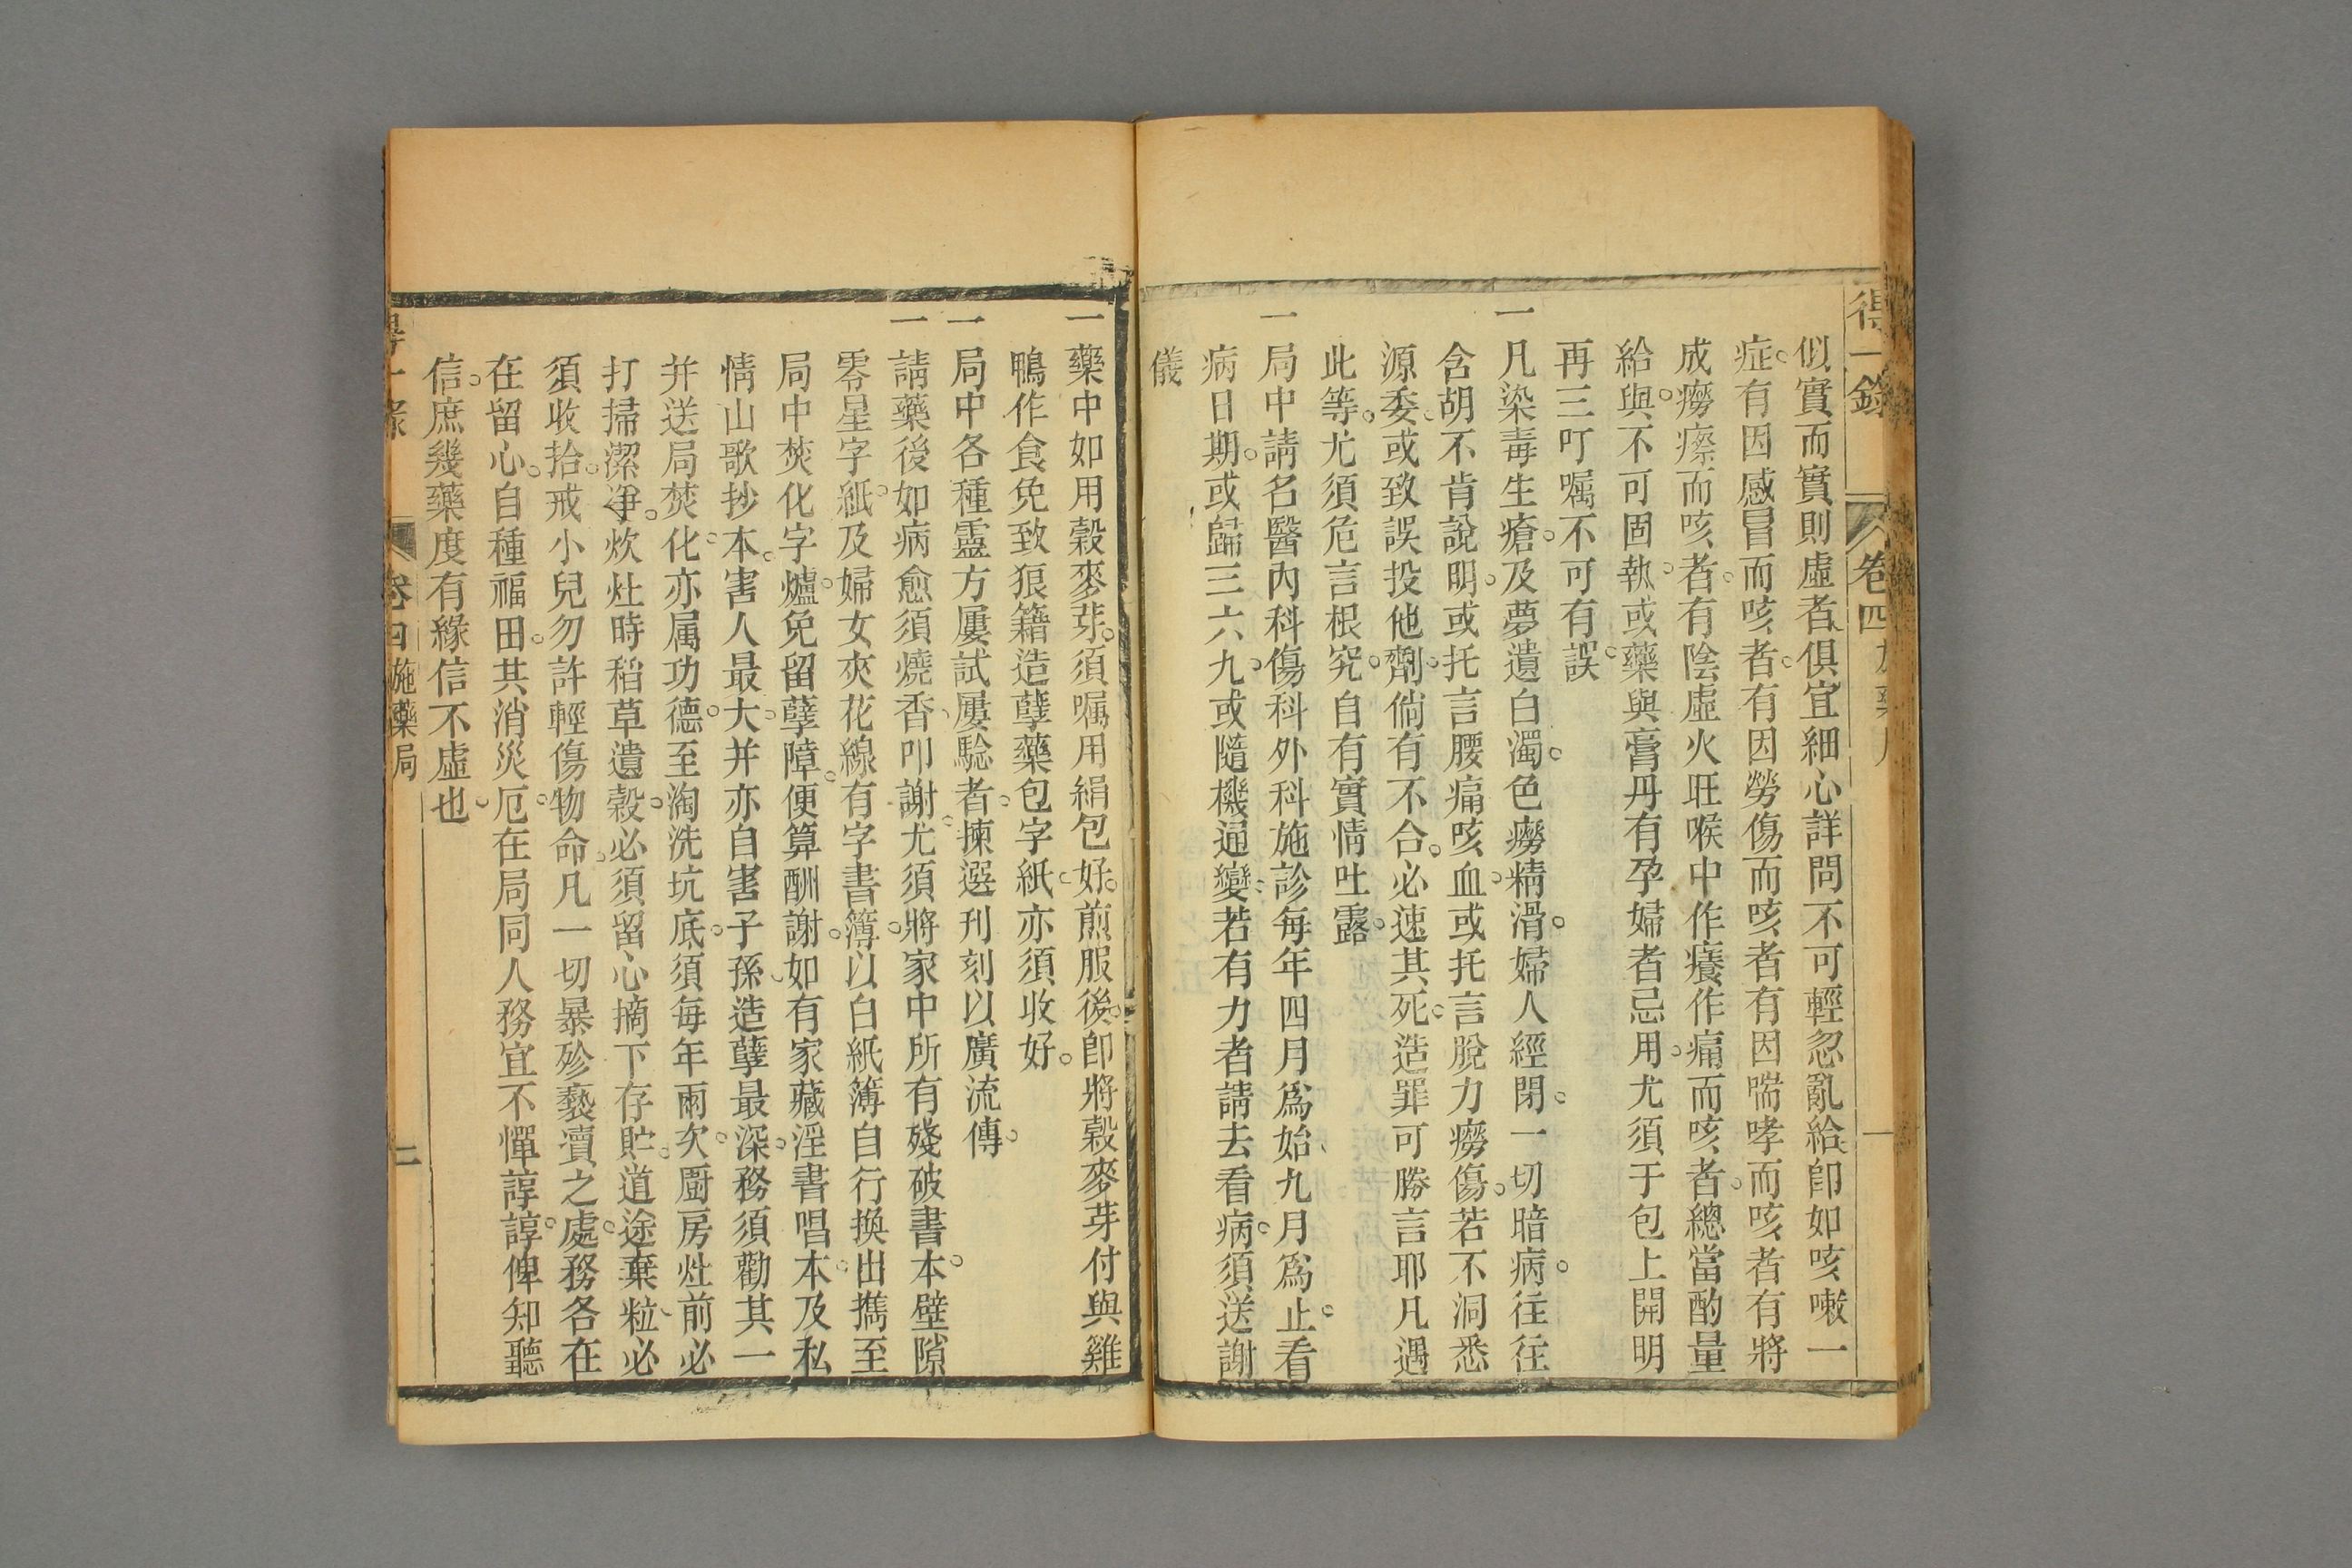 得一錄 卷四 施藥局 一
似實而實則虛者俱宜細心詳問不可輕忽亂給卽如咳嗽一
症。有因感冒而咳者。有因勞傷而咳者有因喘哮而咳者有將
成癆瘵而咳者。有陰虛火旺喉中作癢作痛而咳者。總當酌量
給與。不可固執。或藥與膏丹有孕婦者忌用。尤須于包上開明
再三叮囑不可有誤。
一凡染毒生瘡。及夢遺白濁。色癆精滑。婦人經閉。一切暗病。往往
含胡不肯說明。或托言腰痛咳血。或托言脫力癆傷。若不洞悉
源委。或致誤投他劑。倘有不合。必速其死。造罪可勝言耶凡遇
此等。尤須危言根究。自有實情吐露。
一局中請名醫內科傷科外科施診每年四月為始、九月為止。看
病日期。或歸三六九。或隨機通變。若有力者請去看病。須送謝
儀
一藥中如用穀麥芽。須囑用絹包好。煎服後。卽將穀麥芽付與雞
鴨作食免致狼籍造孽藥包字紙。亦須收好。
一局中各種靈方屢試屢騐者。揀選刊刻以廣流傳。
一請藥後如病愈須燒香、叩謝。尤須將家中所有殘破書本。壁隙
零星字紙。及婦女夾花線有字書簿。以白紙簿自行換出。攜至
局中焚化字爐。免留孽障。便算酬謝。如有家藏淫書唱本。及私
情山歌抄本。害人最大。并亦自害子孫、造孽最深。務須勸其一
并送局焚化。亦属功德。至淘洗坑底。須每年兩次。厨房灶前必
打掃潔淨。炊灶時稻草遺穀。必須留心摘下存貯。道途棄粒、必
須收拾。戒小兒勿許輕傷物命。凡一切暴殄褻瀆之處。務各在
在留心。自種福田。其消災厄。在局同人務宜不憚諄諄。俾知聽
信。庶幾藥度有緣信不虛也。
得一錄 卷四 施藥局 二